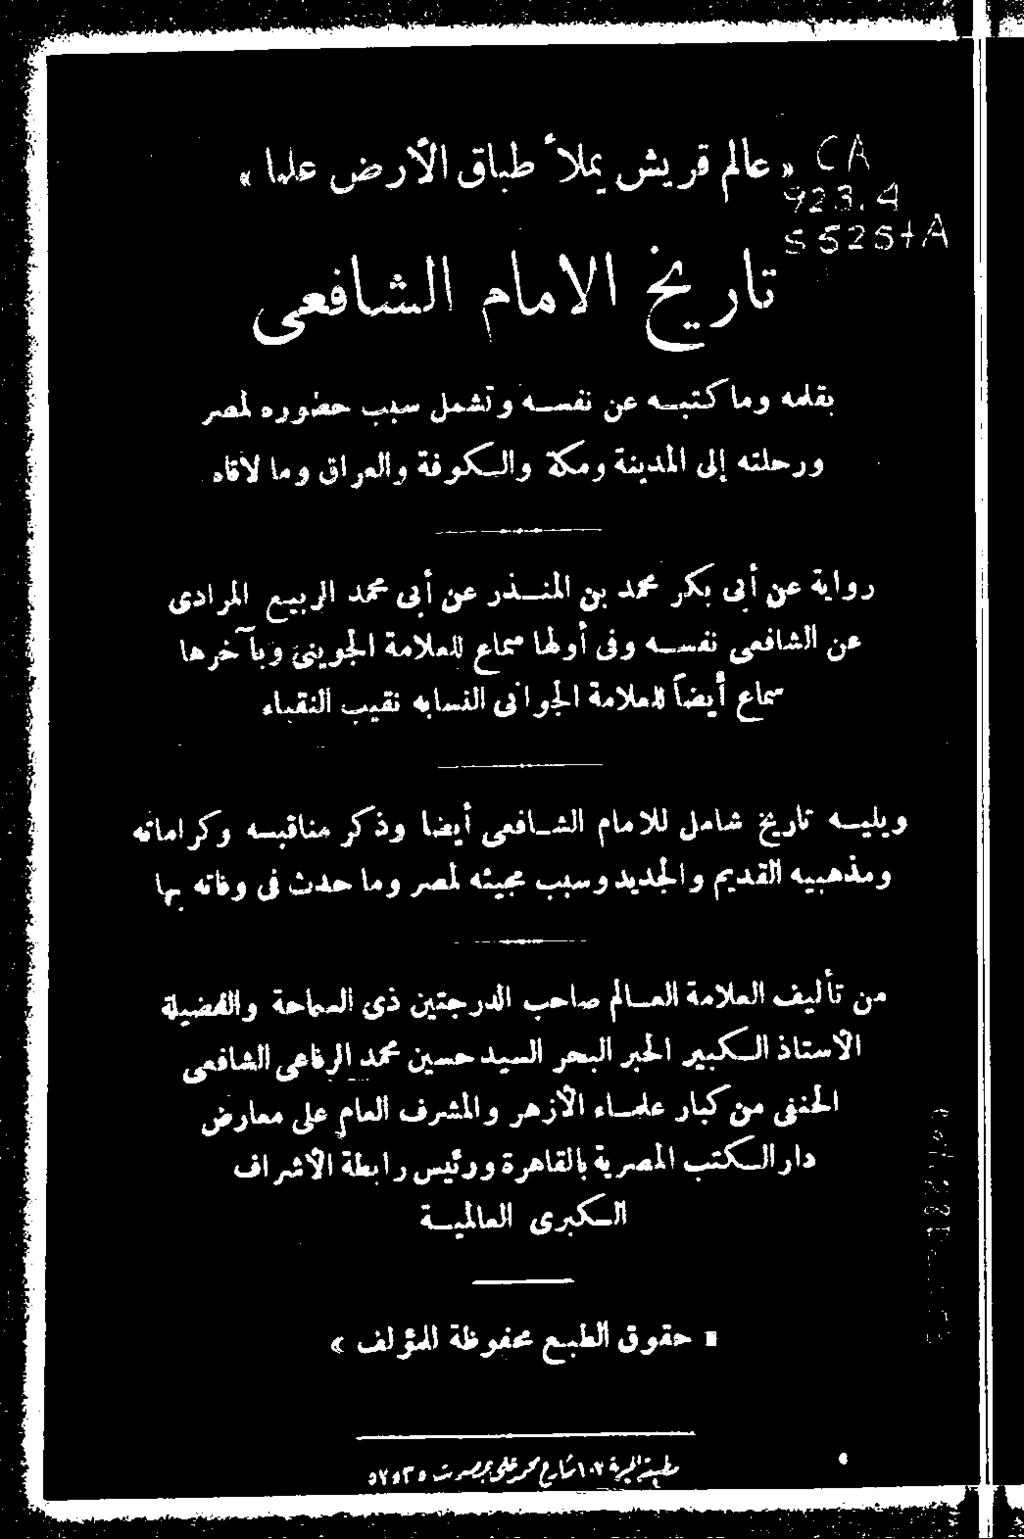 « عالم قريش يملأ طباق الأرض علما »
CA
923.4
S525tA
تاريخ الامام الشافعى
بقلمه وما كتبه عن نفسه وتشمل سبب حضوره لمصر
ورحلته إلى المدينة ومكة والكوفة والعراق وما لاقاه
رواية عن أبى بكر محمد بن المنذر عن أبى محمد الربيع المرادى
عن الشافعى نفسه وفى أولها سماع للعلامة الجوينى وبآخرها
سماع أيضاً للعلامة الجوانى النسابه نقيب النقباء
ويليه تاريخ شامل للامام الشافعى أيضا وذكر مناقبه وكراماته
ومذهبيه القديم والجديد وسبب مجيئه لمصر وما حدث فى وفاته بها
من تأليف العلامة العالم صاحب الدرجتين ذى السماحة والفضيلة
الأستاذ الكبير الحبر البحر السيد حسين محمد الرفاعى الشافعى
الحنفى من كبار علماء الأزهر والمشرف العام على معارض
دار الكتب المصرية بالقاهرة ورئيس رابطة الأشراف
الكبرى العالمية
« حقوق الطبع محفوظة للمؤلف »
شارع محمد على بمصر ت